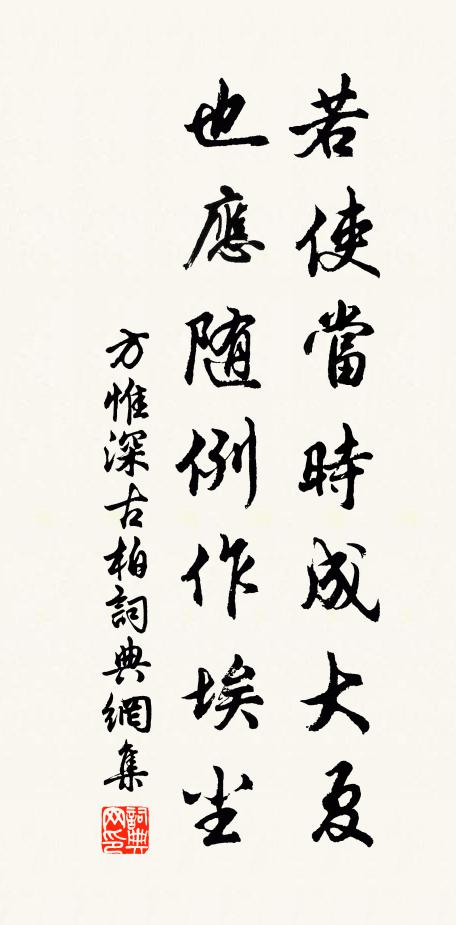 若使當時成大夏
也應随例作埃尘
方惟深古柏詞典網集
詞典网印